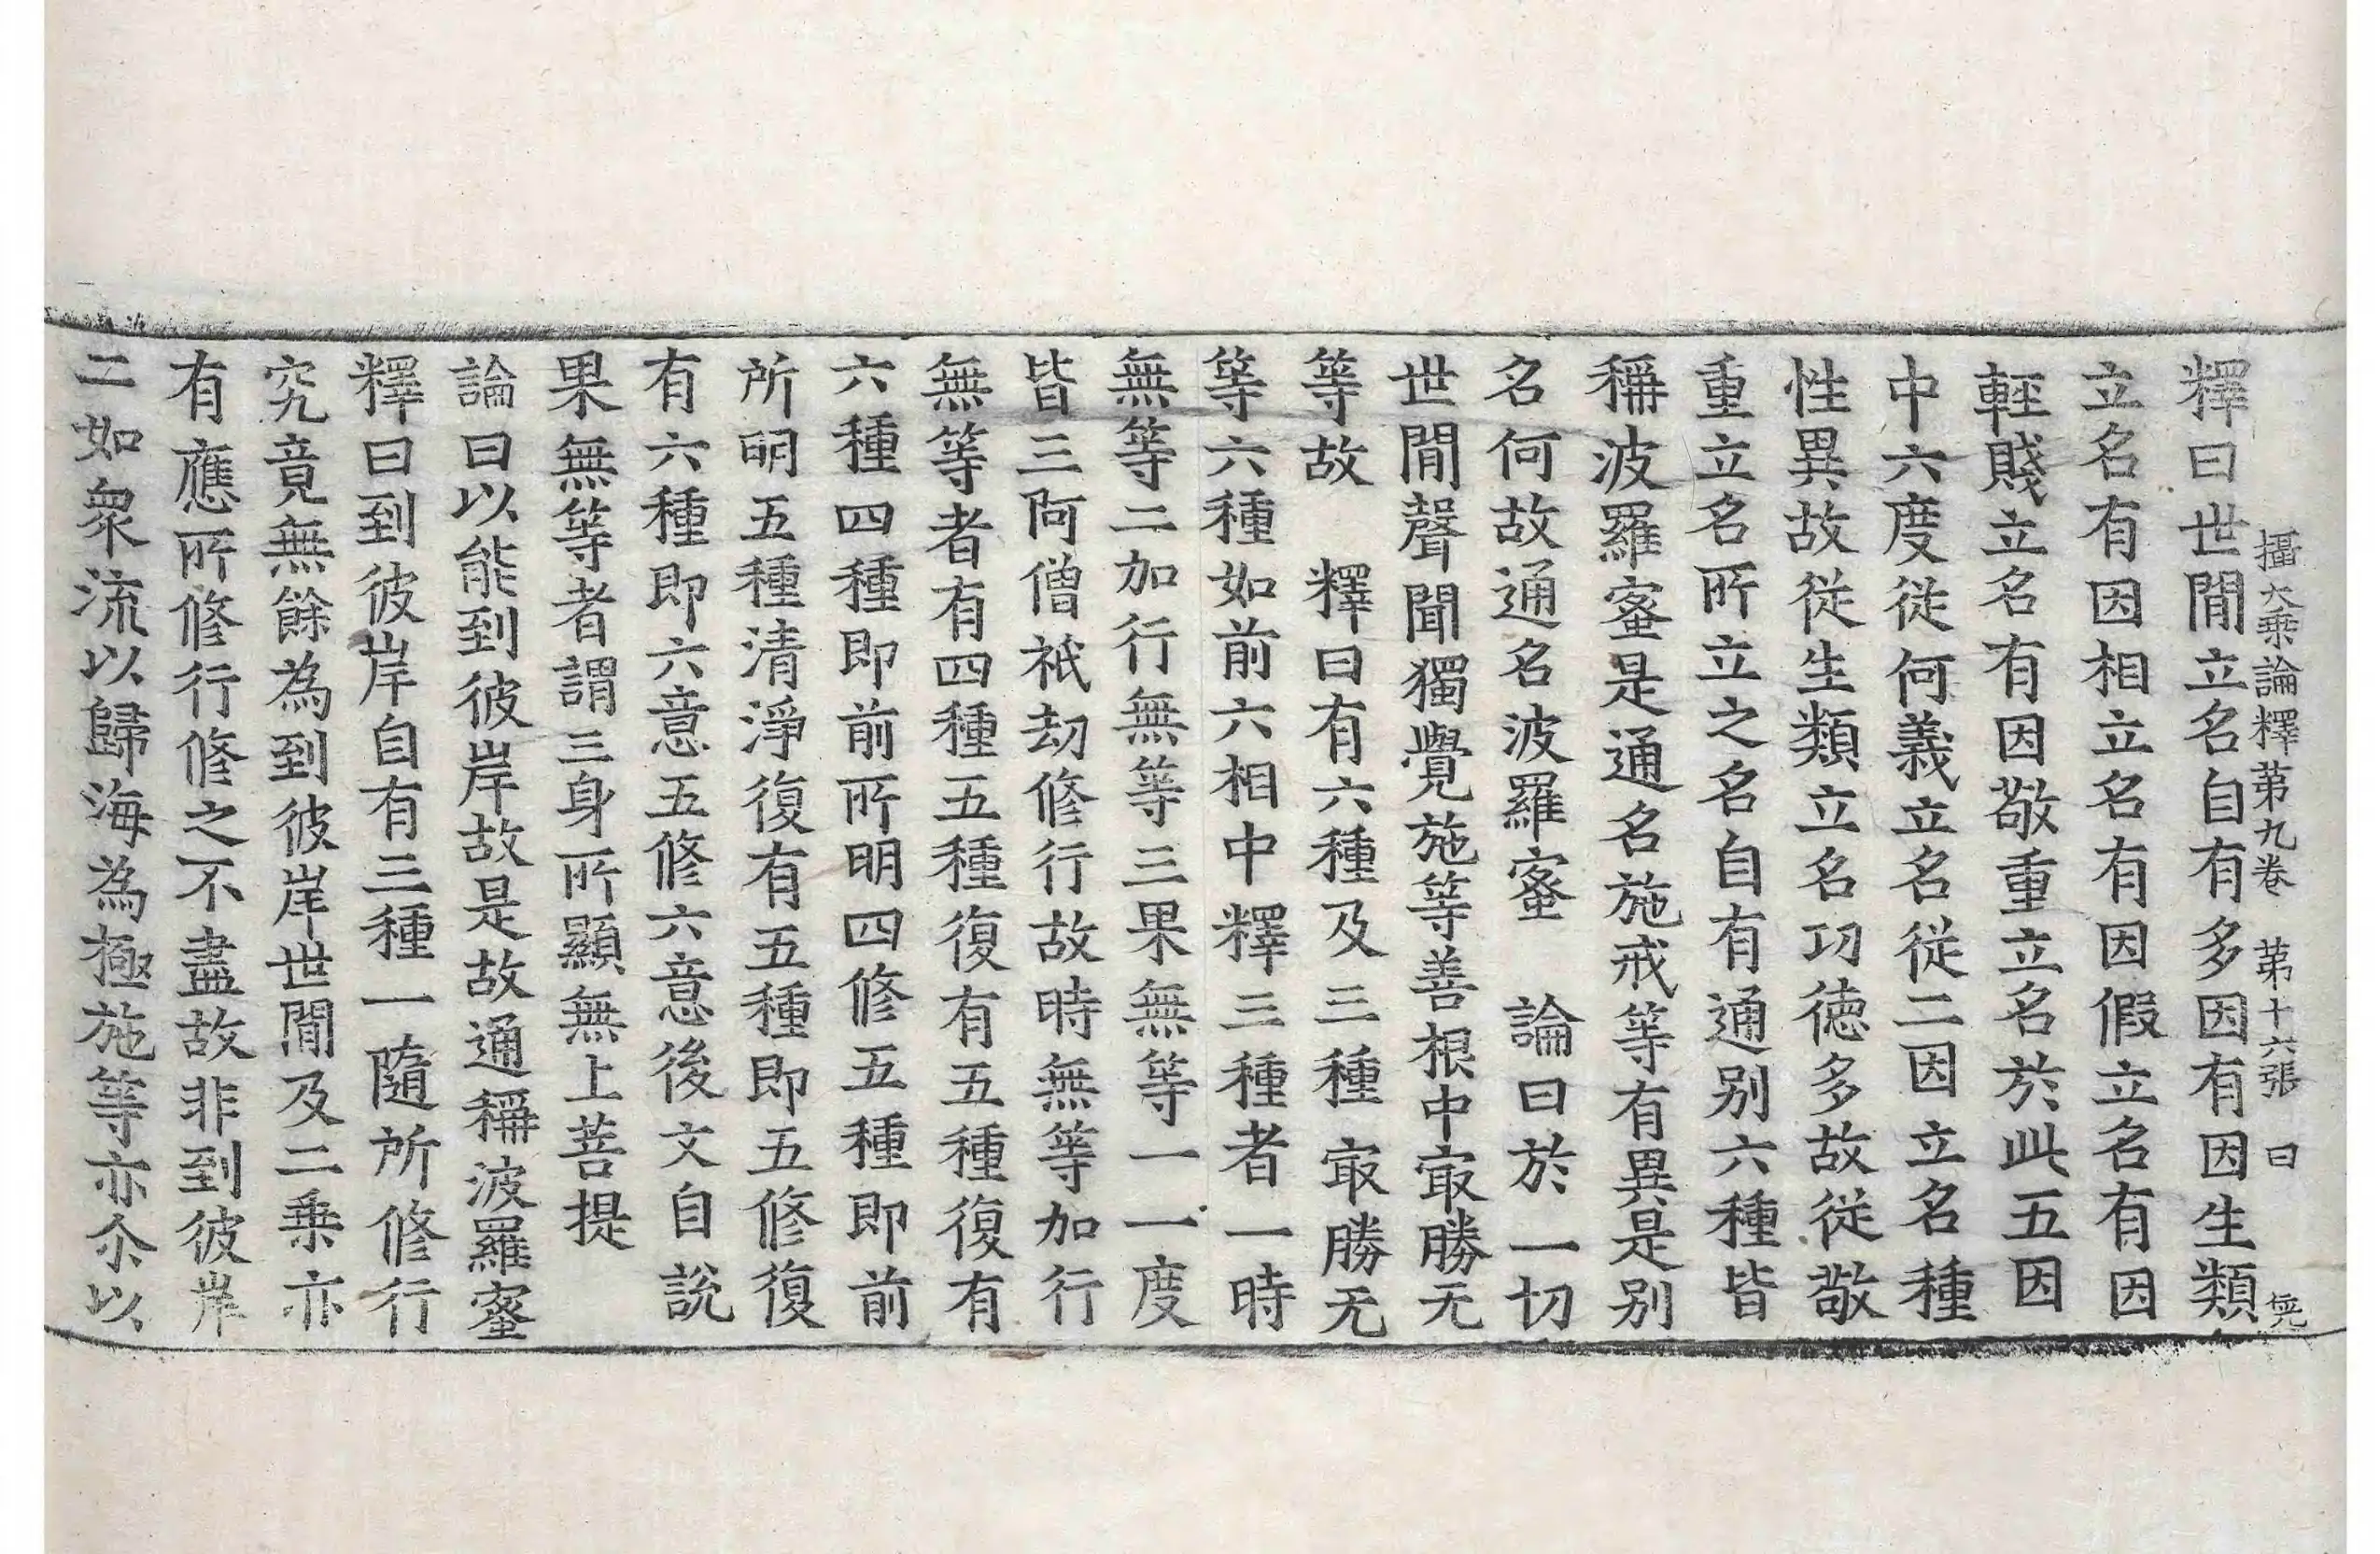 攝大乘論釋第九卷　第十六張　曰
釋曰世間立名自有多因有因生類
立名有因相立名有因假立名有因
輕賤立名有因敬重立名於此五因
中六度從何義立名從二因立名種
性異故從生類立名功德多故從敬
重立名所立之名自有通別六種皆
稱波羅蜜是通名施戒等有異是別
名何故通名波羅蜜　論曰於一切
世間聲聞獨覺施等善根中㝡勝无
等故　釋曰有六種及三種㝡勝无
等六種如前六相中釋三種者一時
無等二加行無等三果無等一一度
皆三阿僧祇劫修行故時無等加行
無等者有四種五種復有五種復有
六種四種即前所明四修五種即前
所明五種清淨復有五種即五修復
有六種即六意五修六意後文自說
果無等者謂三身所顯無上菩提
論曰以能到彼岸故是故通稱波羅蜜
釋曰到彼岸自有三種一隨所修行
究竟無餘為到彼岸世間及二乘亦
有應所修行修之不盡故非到彼岸
二如衆流以歸海為極施等亦尒以